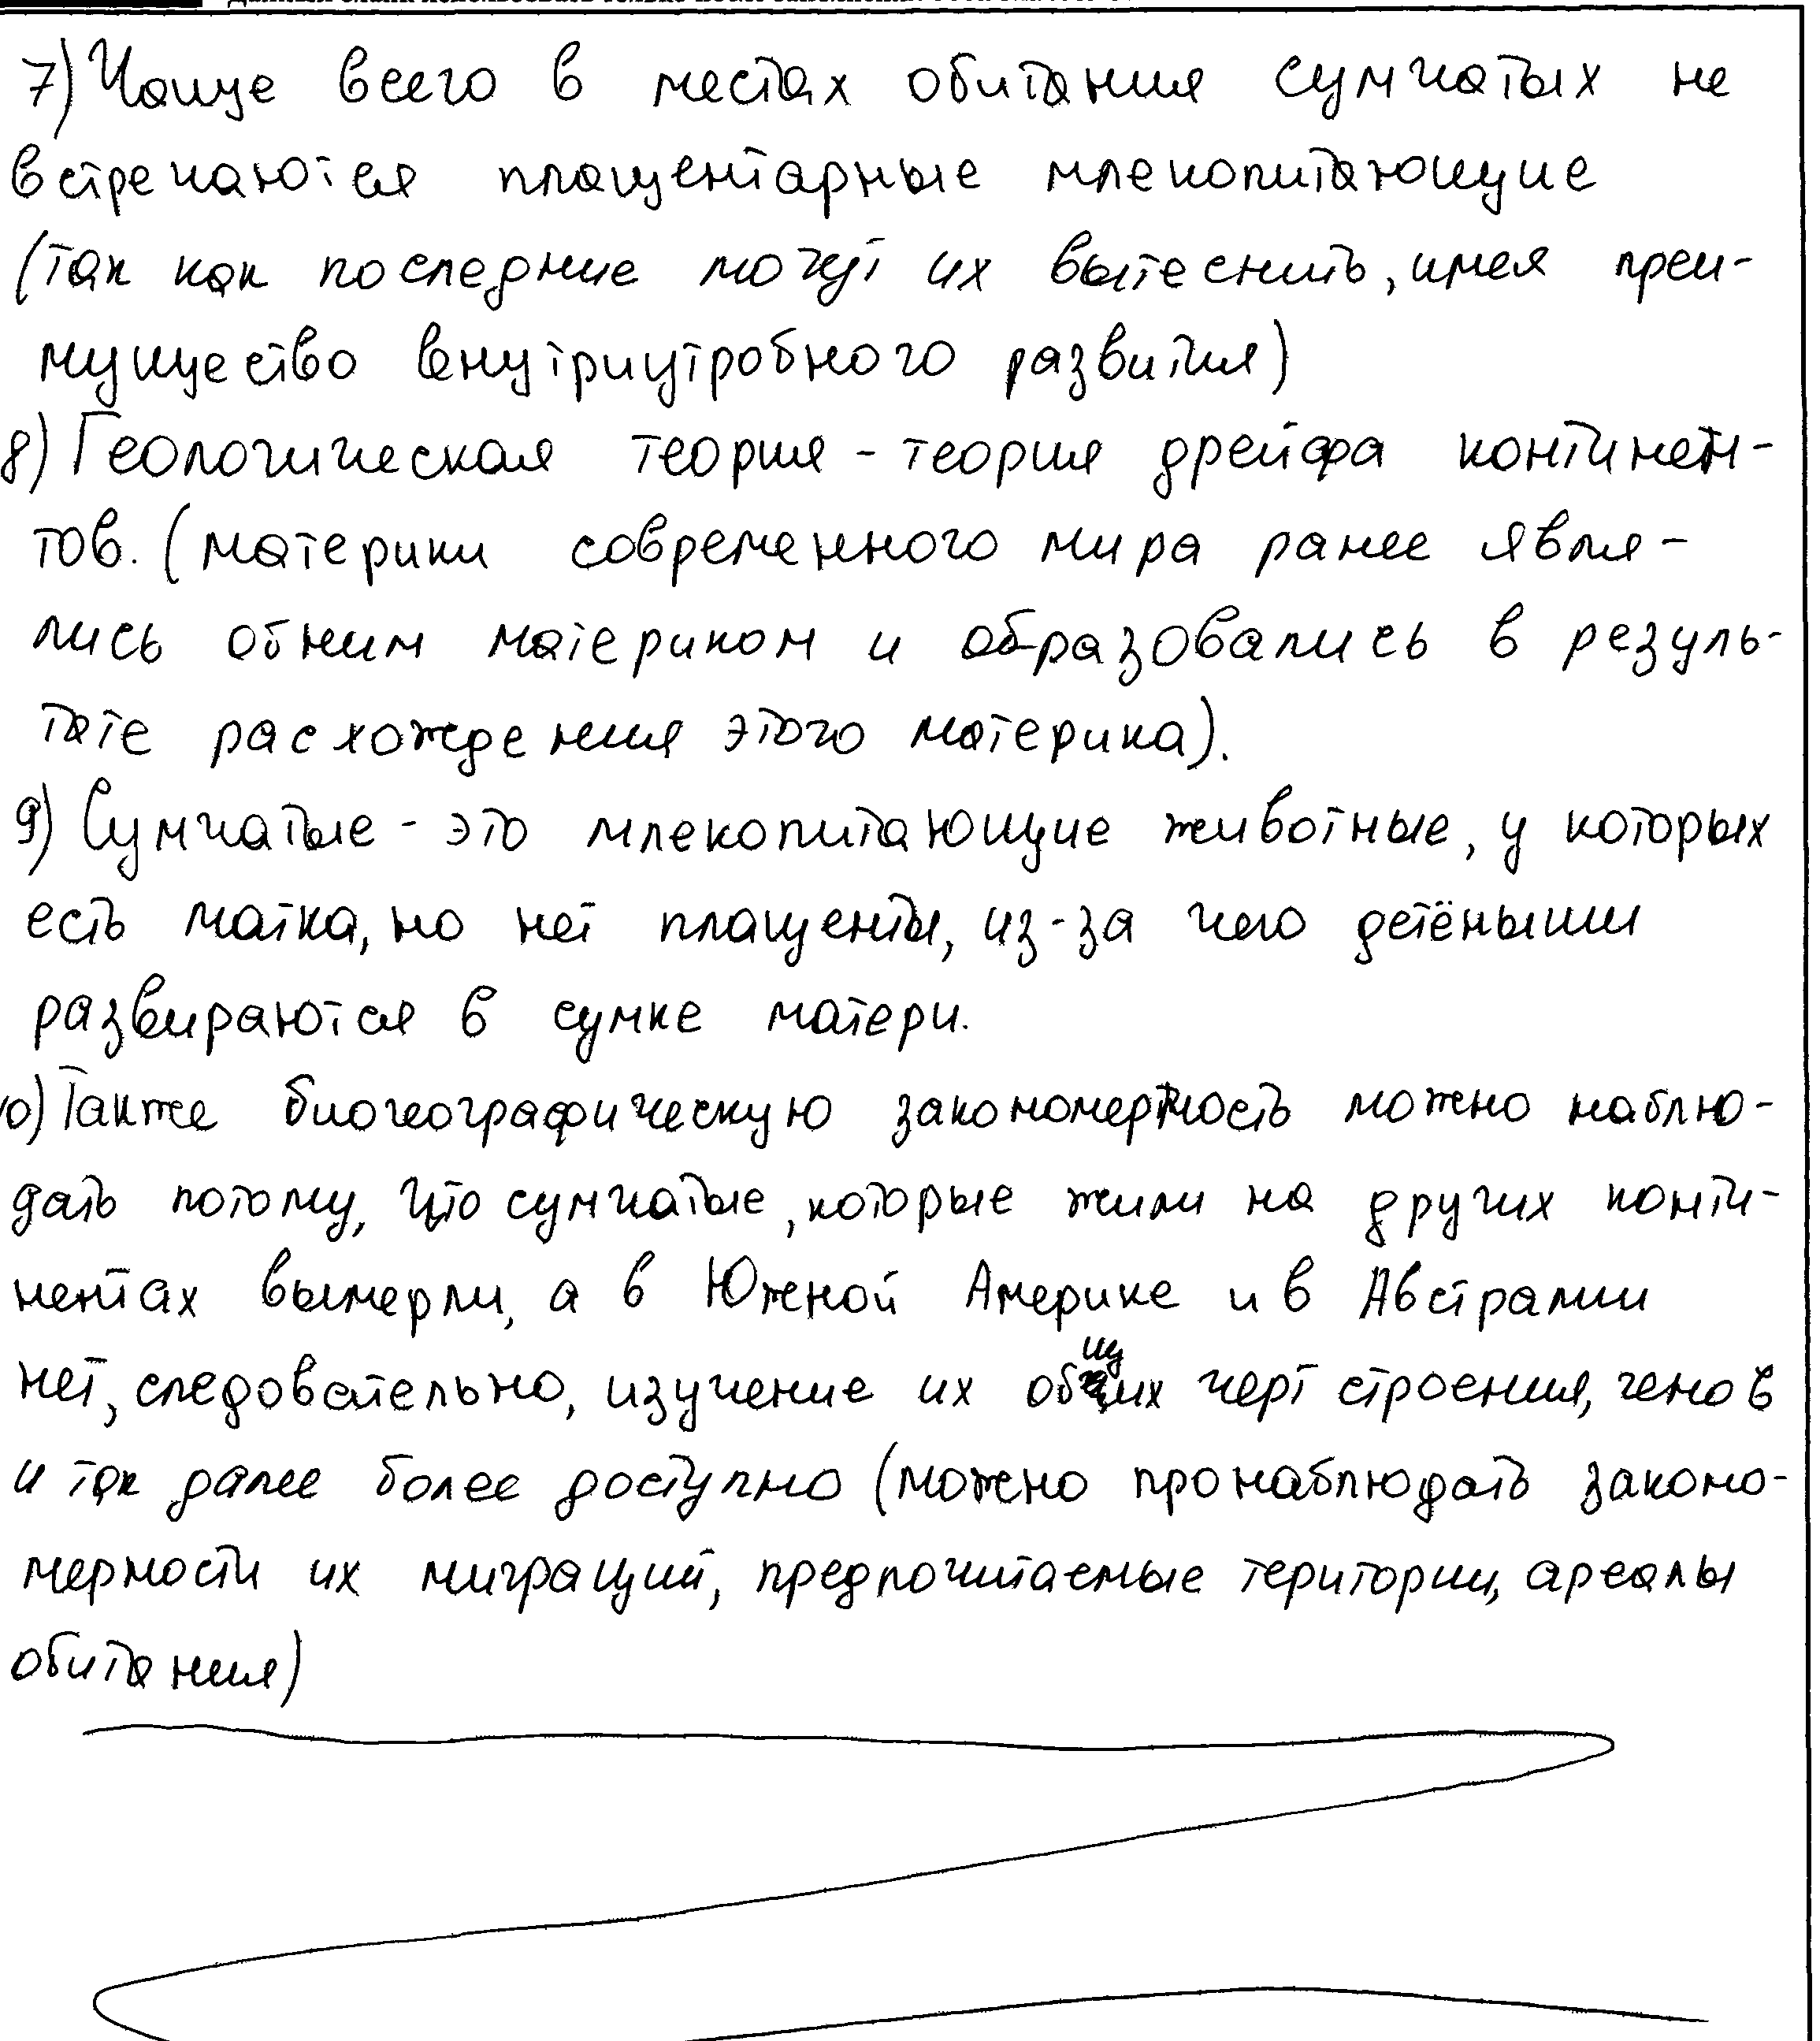 7) Чаще всего в местах обитания сумчатых не
встречаются плацентарные млекопитающие
(так как последние могут их вытеснить, имея преи-
мущество внутриутробного развития)
8) Геологическая теория - теория дрейфа континен-
тов. (материки современного мира ранее явля-
лись одним материком и образовались в резуль-
тате расхождения этого материка).
9) Сумчатые - это млекопитающие животные, у которых
есть матка, но нет плаценты, из-за чего детёныши
развираются в сумке матери.
10) Также биогеографическую закономерность можно наблю-
дать потому, что сумчатые, которые жили на других конти-
нентах вымерли, а в Южной Америке и в Австралии
нет, следовательно, изучение их общих черт строения, генов
и так далее более доступно (можно пронаблюдать законо-
мерности их миграций, предпочитаемые територии, ареалы
обитания)